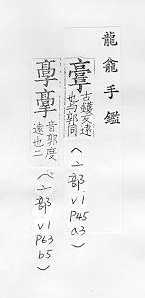 龍龕手鑑
古鑊反遠
也与郭同
(亠部v1
P45
a3)
音郭度
遠也二
(亠部v1
P63
b5)